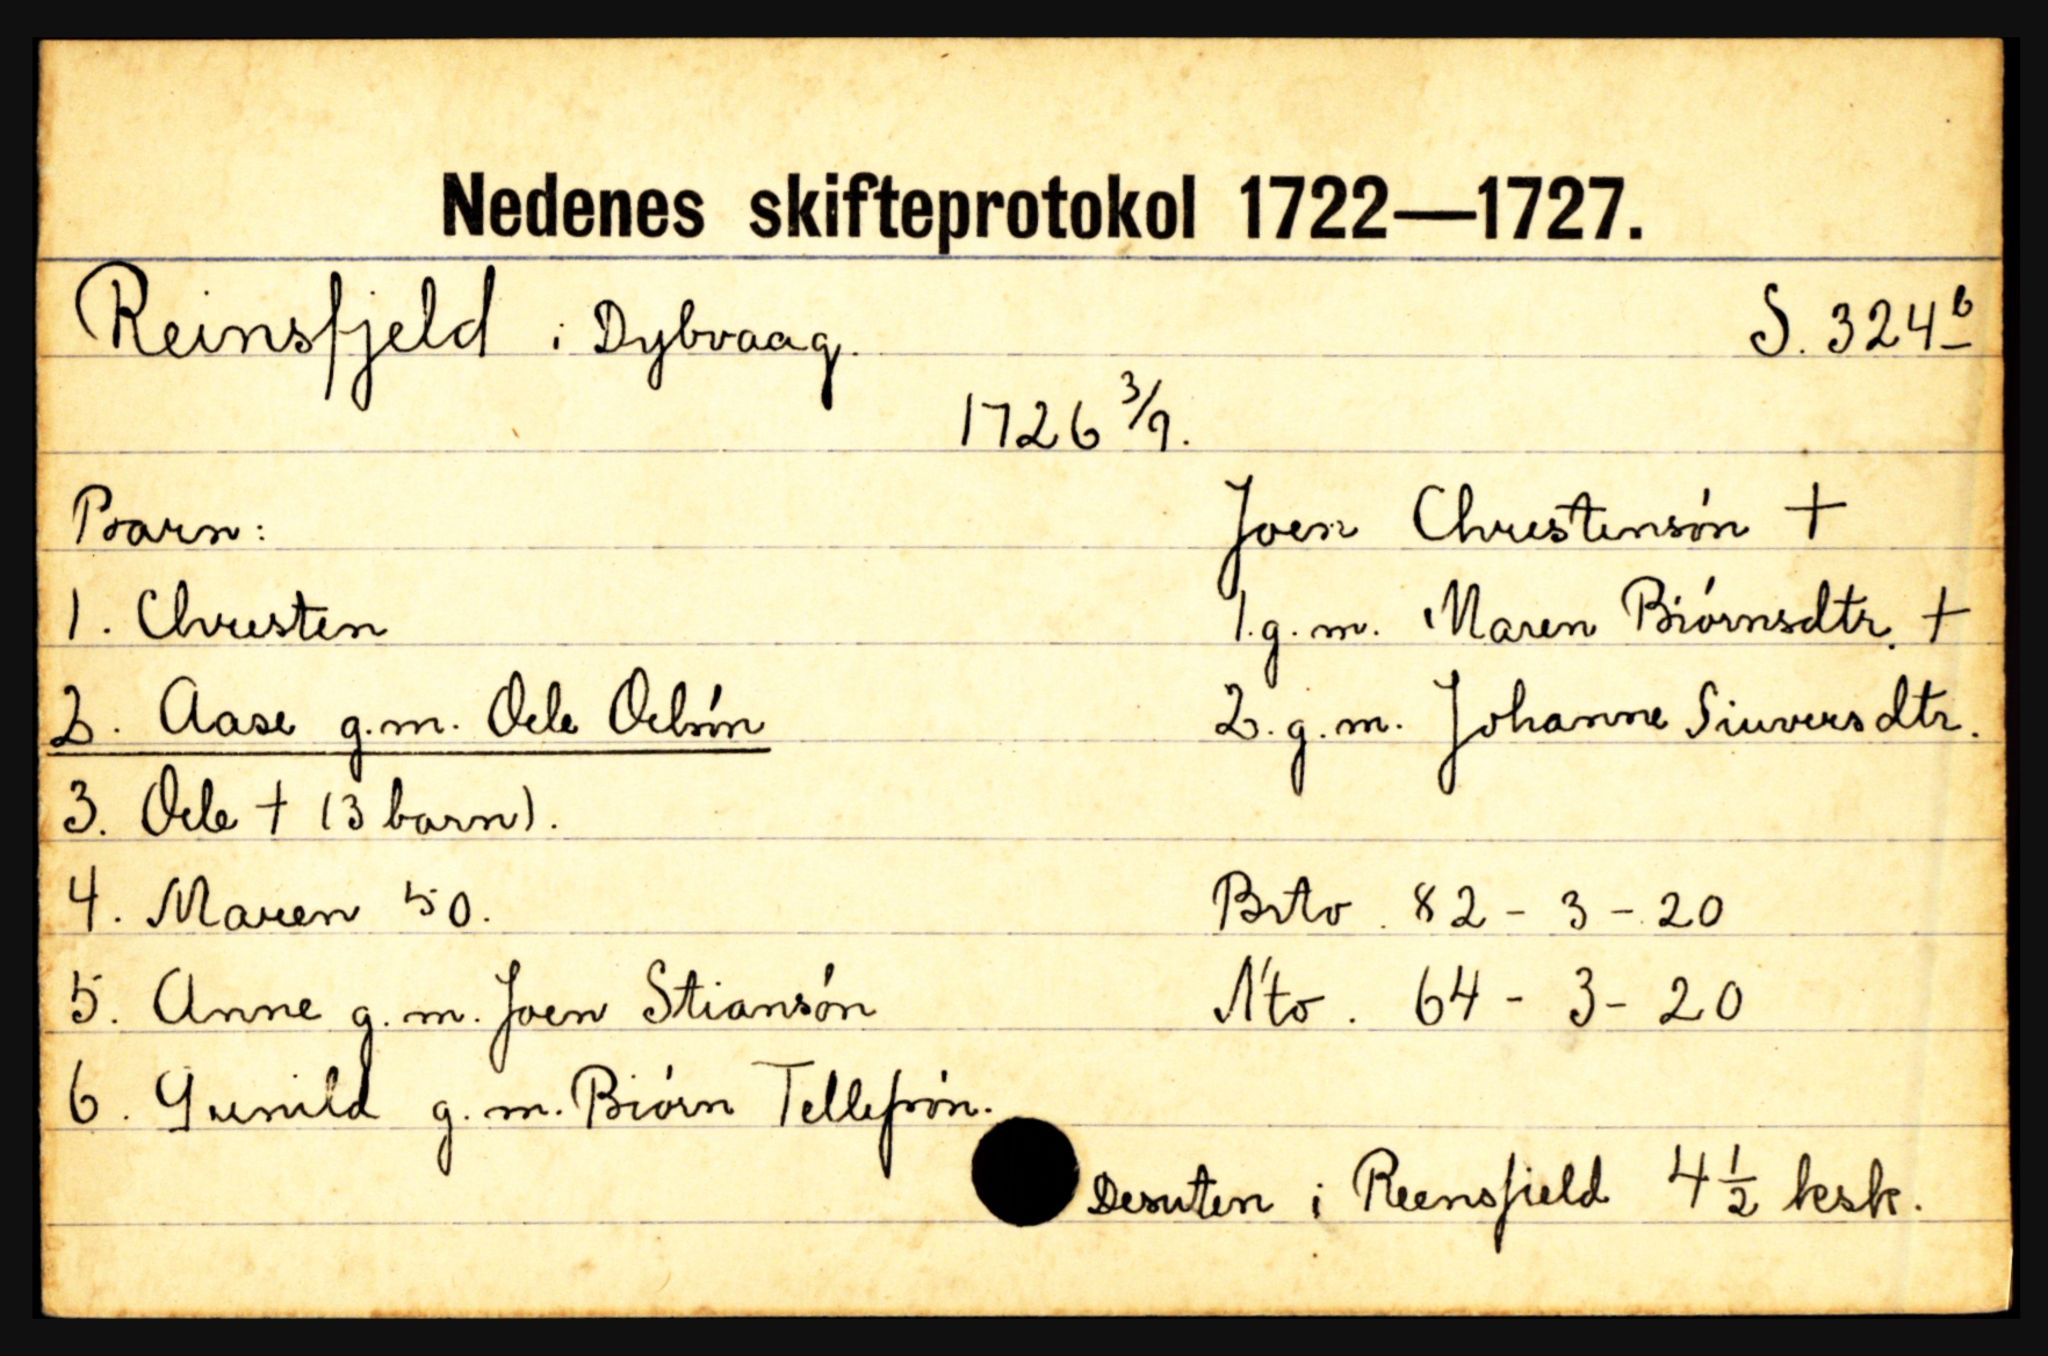 Nedenes skifteprotokol 1722—1727.
Reinsfjeld i Dybvaag. S. 324b
1726 3/9.
Barn: Joen Chrestensón +
1. Chresten 1.g.m. Maren Biórnsdtr. +
2. Aase g.m. Oele Oelsón 2.g.m. Johanne Siuversdtr.
3. Oele + (3 barn).
4. Maren 50. Brto. 82 - 3 - 20
5. Anne g.m. Joen Stiansón Nto. 64 - 3 - 20
6. Gunild g.m. Biórn Tellefsón.
Desuten i Reensfield 4 1/2 ksk.